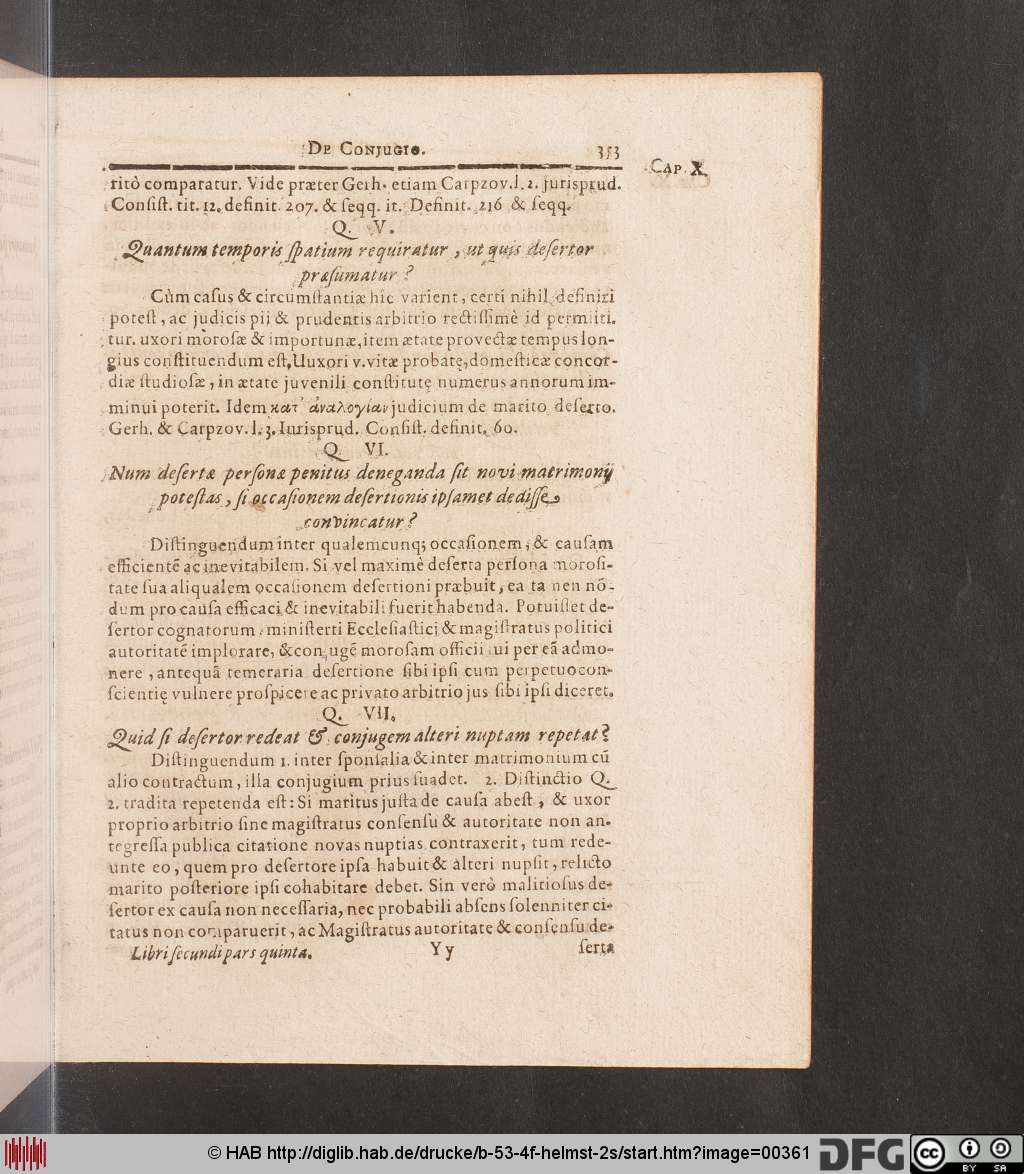 DE CONJUGIO. 353
CAP. X.
ritò comparatur. Vide præter Gerh. etiam Carpzov. l. 2. jurisprud.
Consiſt. tit. 12. definit. 207. & ſeqq. it. Definit. 216 & ſeqq.
Q. V.
Quantum temporis ſpatium requiratur, ut quis deſertor
præſumatur?
Cùm caſus & circumſtantiæ hic varient, certi nihil definiri
poteſt, ac judicis pii & prudentis arbitrio rectiſſimè id permitti.
tur. uxori moroſæ & importunæ, item ætate provectæ tempus lon-
gius conſtituendum eſt, Uuxori v. vitæ probatę, domeſticæ concor-
diæ ſtudioſæ, in ætate juvenili conſtitutę numerus annorum im-
minui poterit. Idem κατ᾽ ἀναλογίαν judicium de marito deſerto.
Gerh. & Carpzov. l. 3. Iurisprud. Conſiſt. definit. 60.
Q. VI.
Num deſertæ perſonæ penitus deneganda ſit novi matrimonij
poteſtas, ſi occaſionem deſertionis ipſamet dediſſe
convincatur?
Diſtinguendum inter qualemcunq; occaſionem, & cauſam
efficientē ac inevitabilem. Si vel maximè deſerta perſona moroſi-
tate ſua aliqualem occaſionem deſertioni præbuit, ea ta nen nō-
dum pro cauſa efficaci & inevitabili fuerit habenda. Potuiſſet de-
ſertor cognatorum, miniſterti Eccleſiaſtici & magiſtratus politici
autoritatē implorare, & conjugē moroſam officii ſui per eā admo-
nere, antequā temeraria deſertione ſibi ipſi cum perpetuo con-
ſcientię vulnere proſpicere ac privato arbitrio jus ſibi ipſi diceret.
Q. VII.
Quid ſi deſertor redeat & conjugem alteri nuptam repetat?
Diſtinguendum 1. inter ſponſalia & inter matrimonium cū
alio contractum, illa conjugium prius ſuadet. 2. Diſtinctio Q.
2. tradita repetenda eſt: Si maritus juſta de cauſa abeſt, & uxor
proprio arbitrio ſine magiſtratus conſenſu & autoritate non an.
tegreſſa publica citatione novas nuptias contraxerit, tum rede-
unte eo, quem pro deſertore ipſa habuit & alteri nupſit, relicto
marito poſteriore ipſi cohabitare debet. Sin verò malitioſus de-
ſertor ex cauſa non neceſſaria, nec probabili abſens ſolenniter ci-
tatus non comparuerit, ac Magiſtratus autoritate & conſenſu de-
Libri ſecundi pars quinta. Y y ſerta
© HAB http://diglib.hab.de/drucke/b-53-4f-helmst-2s/start.htm?image=00361
DFG cc BY SA